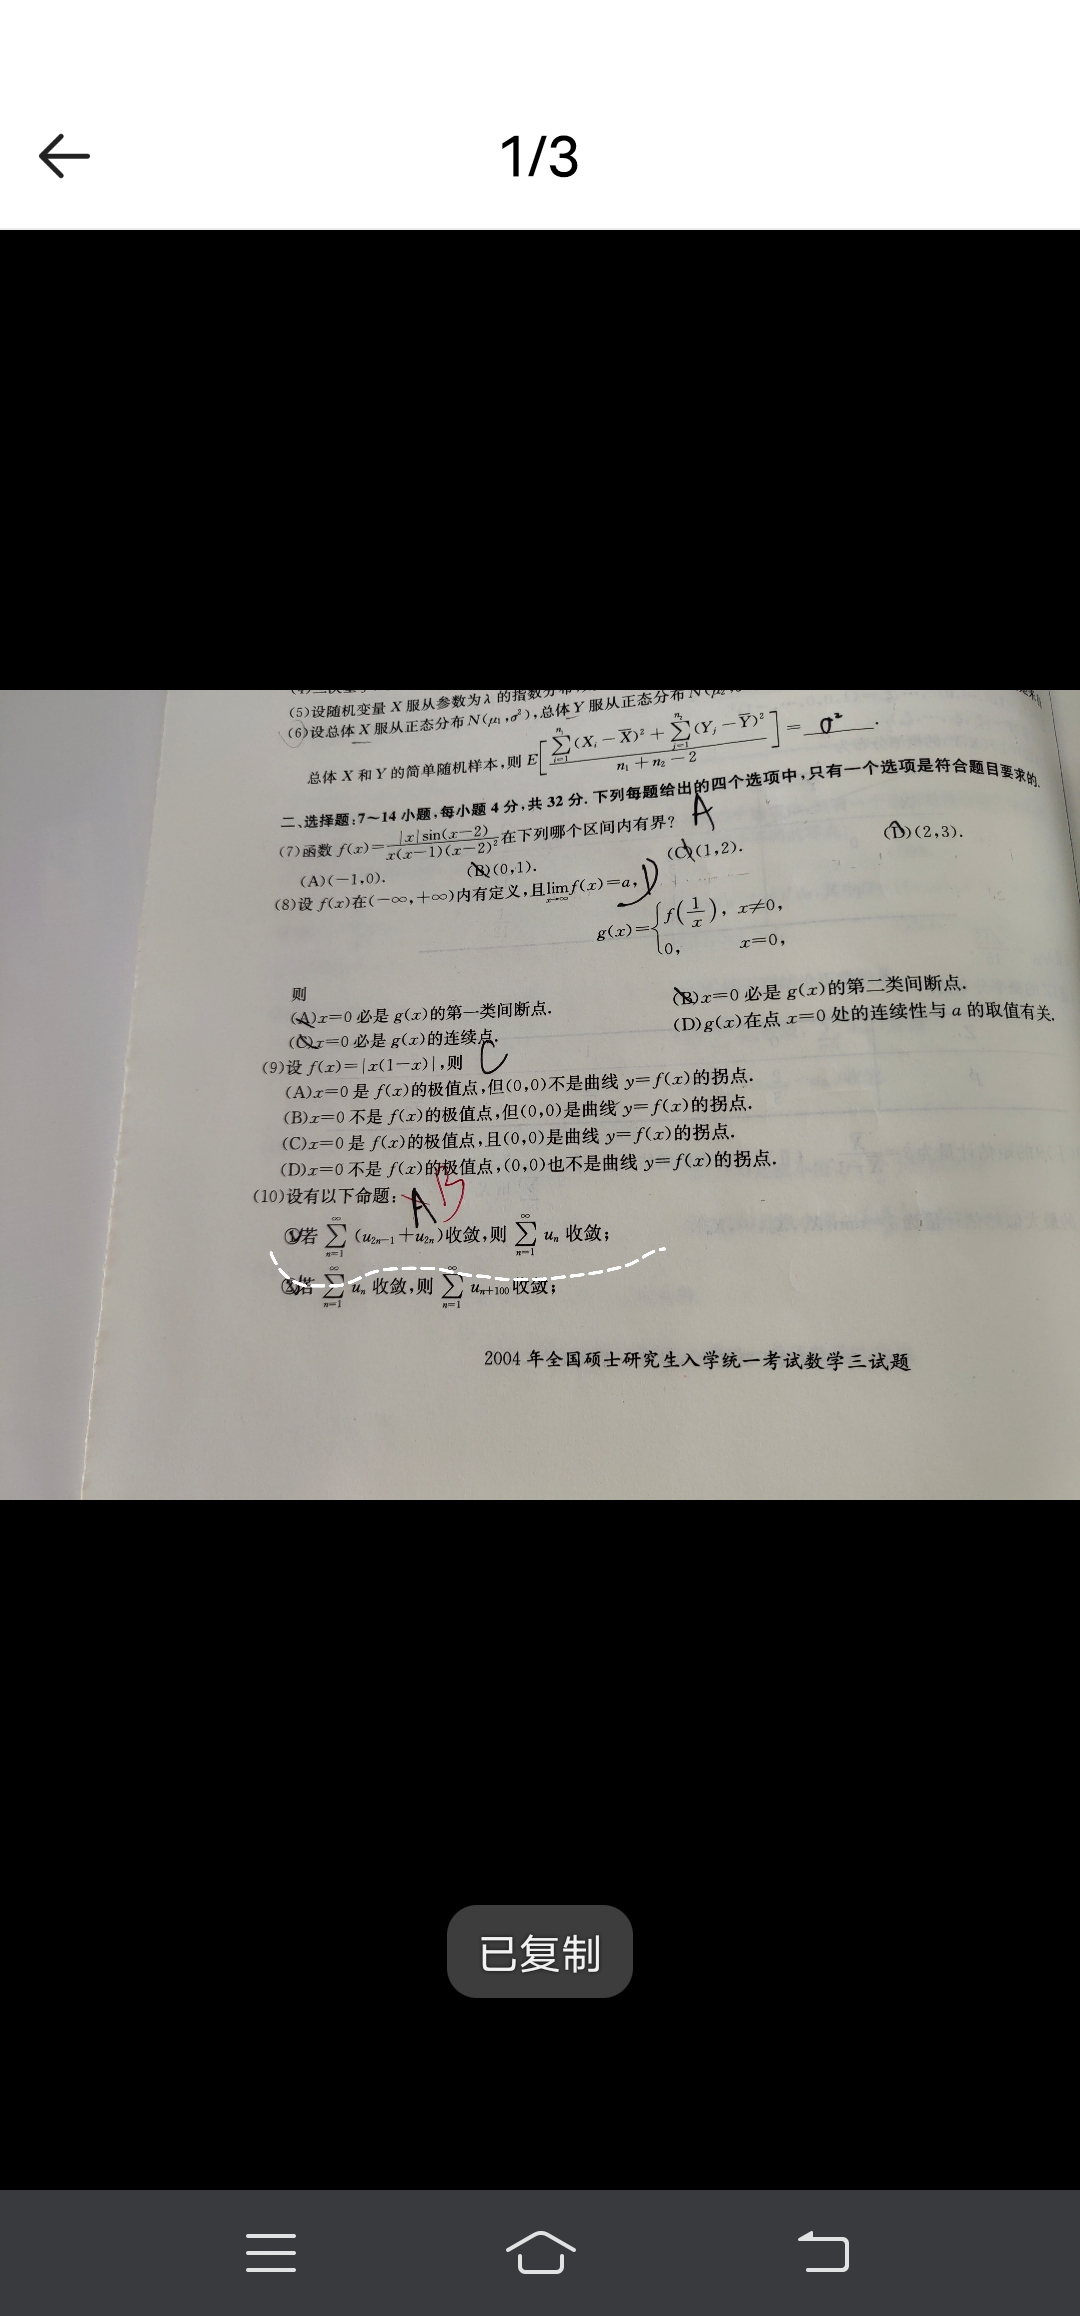 1/3
(5)设随机变量 X 服从参数为λ的指数分布
(6)设总体 X 服从正态分布 N(μ₁,σ²),总体 Y 服从正态分布 N(μ₂,
总体 X 和 Y 的简单随机样本,则 E[(∑_{i=1}^{n₁}(X_i−X̄)²+∑_{j=1}^{n₂}(Y_j−Ȳ)²)/(n₁+n₂−2)]=σ².
二、选择题:7~14 小题,每小题 4 分,共 32 分. 下列每题给出的四个选项中,只有一个选项是符合题目要求的.
(7)函数 f(x)=|x|sin(x−2)/(x(x−1)(x−2)²)在下列哪个区间内有界? A
(A)(−1,0). (B)(0,1). (C)(1,2). (D)(2,3).
(8)设 f(x)在(−∞,+∞)内有定义,且lim_{x→∞}f(x)=a, D
g(x)={f(1/x), x≠0,
0, x=0,
则
(A)x=0 必是 g(x)的第一类间断点. (B)x=0 必是 g(x)的第二类间断点.
(C)x=0 必是 g(x)的连续点. (D)g(x)在点 x=0 处的连续性与 a 的取值有关.
(9)设 f(x)=|x(1−x)|,则 C
(A)x=0 是 f(x)的极值点,但(0,0)不是曲线 y=f(x)的拐点.
(B)x=0 不是 f(x)的极值点,但(0,0)是曲线 y=f(x)的拐点.
(C)x=0 是 f(x)的极值点,且(0,0)是曲线 y=f(x)的拐点.
(D)x=0 不是 f(x)的极值点,(0,0)也不是曲线 y=f(x)的拐点.
(10)设有以下命题: A B
①若 ∑_{n=1}^{∞}(u_{2n−1}+u_{2n})收敛,则 ∑_{n=1}^{∞} u_n 收敛;
②若 ∑_{n=1}^{∞} u_n 收敛,则 ∑_{n=1}^{∞} u_{n+100} 收敛;
2004 年全国硕士研究生入学统一考试数学三试题
已复制